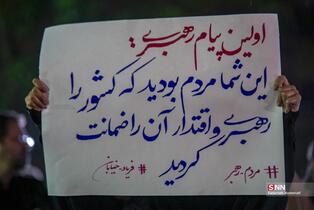 اولین پیام رهبری:
این شما مردم بودید که کشور را
رهبری و اقتدار آن را ضمانت
کردید
#مردم_رهبر
#فریاد_خیابان
SNN